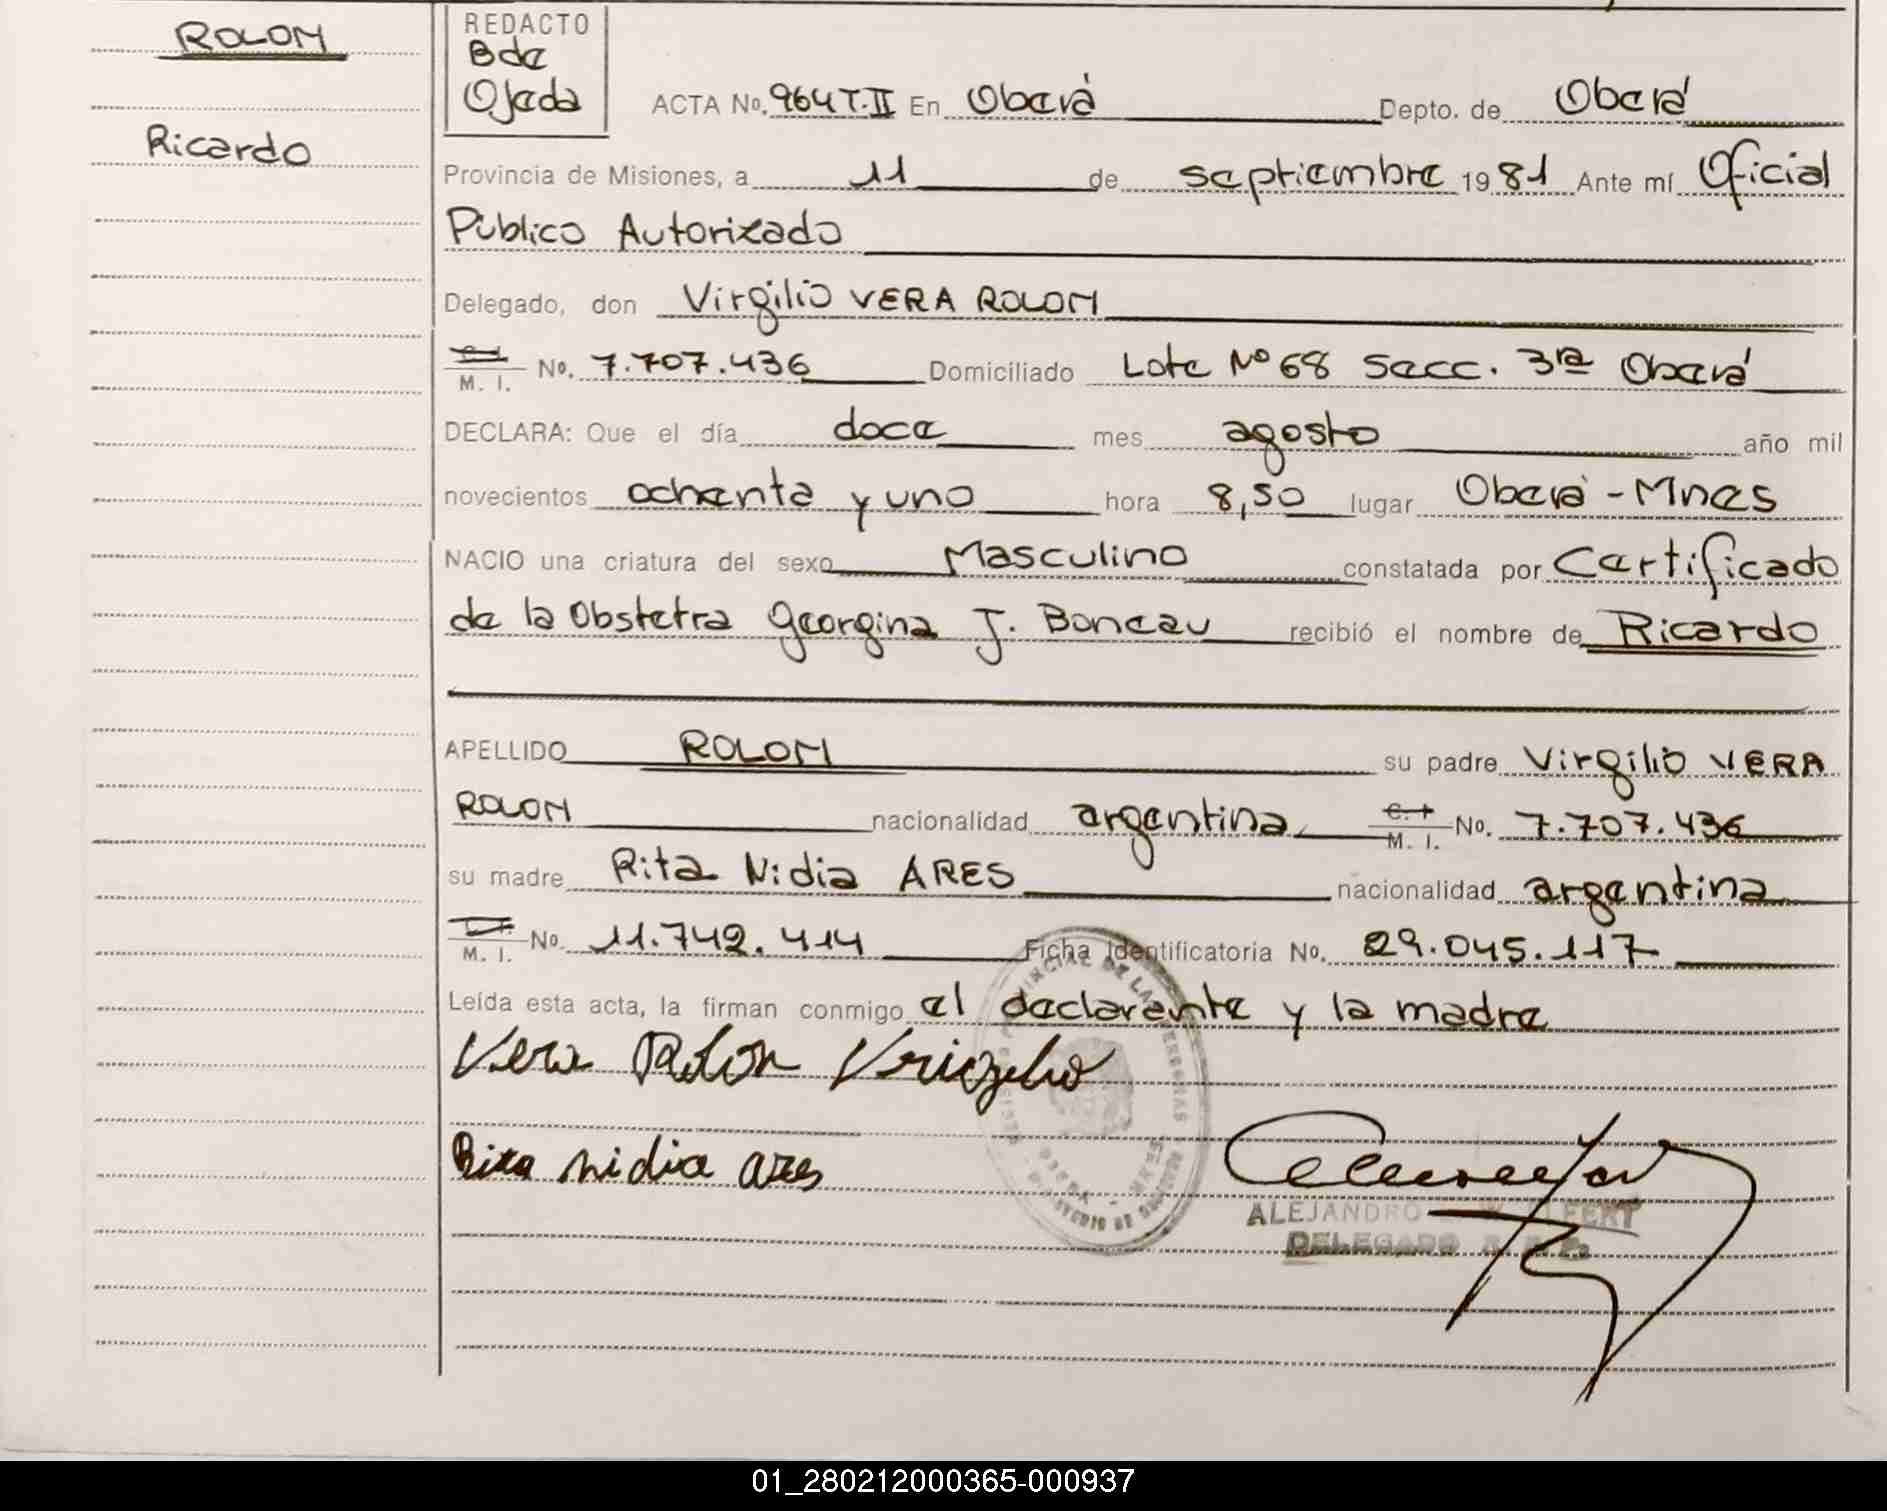 ROLON
Ricardo
REDACTO
Bde
Ojeda
ACTA No. 964 T.II En Oberá Depto. de Oberá
Provincia de Misiones, a 11 de septiembre 1981 Ante mí Oficial
Público Autorizado
Delegado, don Virgilio VERA ROLON
M. I. No. 7.707.436 Domiciliado Lote Nº 68 Secc. 3ra Oberá
DECLARA: Que el día doce mes agosto año mil
novecientos ochenta y uno hora 8,50 lugar Oberá - Mnes
NACIO una criatura del sexo Masculino constatada por Certificado
de la Obstetra Georgina J. Boneau recibió el nombre de Ricardo
APELLIDO ROLON su padre Virgilio VERA
ROLON nacionalidad argentina C. I. M. I. No. 7.707.436
su madre Rita Nidia ARES nacionalidad argentina
M. I. No. 11.742.414 Ficha Identificatoria No. 29.045.117
Leída esta acta, la firman conmigo el declarante y la madre
Vera Rolon Virgilio
Rita nidia ares
ALEJANDRO
DELEGADO
01_280212000365-000937